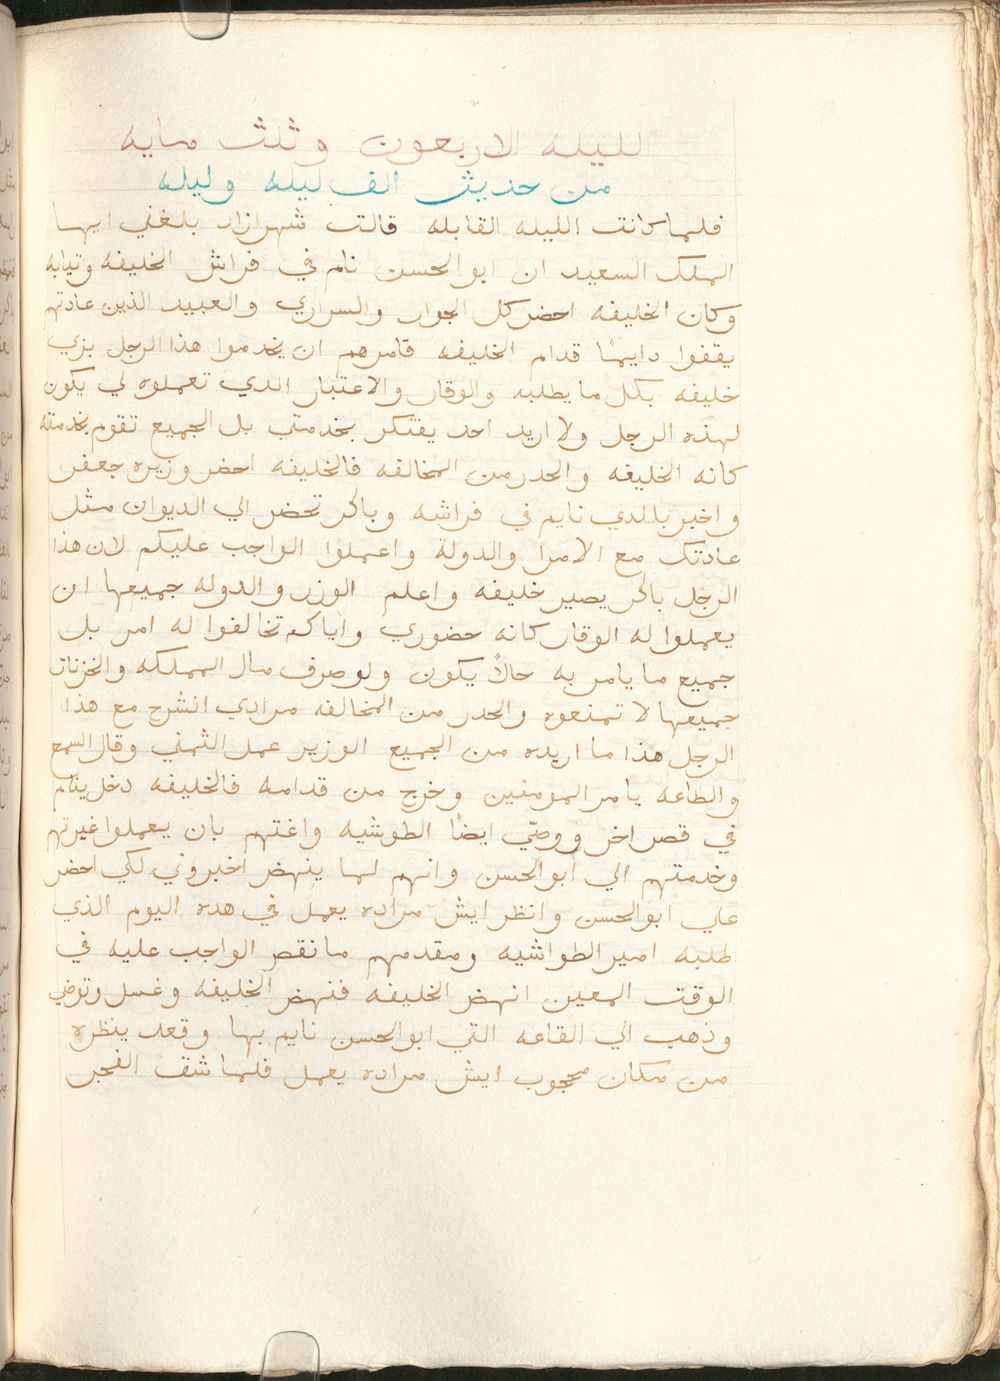 الليله الاربعون وثلث مايه
من حديث الف ليله وليله
فلما كانت الليله القابله قالت شهرازاد بلغني ايها
الملك السعيد ان ابو الحسن نام في فراش الخليفه وتيابه
وكان الخليفه احضر كل الجوار والسراري والعبيد الذين عادتهم
يقفوا دايمًا قدام الخليفه فامرهم ان يخدموا هذا الرجل بزي
خليفه بكل ما يطلبه والوقار والاعتبار الدي تعملوه لي يكون
لهذه الرجل ولا اريد احد يفتكر بخدمتي بل الجميع تقوم بخدمته
كانه الخليفه والحدر من المخالفه فالخليفه احضر وزيره جعفر
واخبر بالدي نايم في فراشه وباكر تحضر الي الديوان مثل
عادتك مع الامرا والدولة واعملوا الواجب عليكم لان هذا
الرجل باكر يصير خليفه واعلم الوزر والدوله جميعها ان
يعملوا له الوقار كانه حضوري واياكم تخالفوا له امر بل
جميع ما يامر به حالاً يكون ولو صرف مال المملكه والخزنات
جميعها لا تمنعوه والحدر من المخالفه مرادي انشرح مع هذا
الرجل هذا ما اريده من الجميع الوزير عمل الثمني وقال السمع
والطاعه يامر المومنين وخرج من قدامه فالخليفه دخل ينام
في قصر اخر ووصّي ايضًا الطوشيه واغتهم بان يعملوا غيرتهم
وخدمتهم الي ابو الحسن وانهم لما ينهض اخبروني لكي احضر
علي ابو الحسن وانظر ايش مراده يعمل في هده اليوم الذي
طلبه امير الطواشيه ومقدمهم ما نقص الواجب عليه في
الوقت المعين انهض الخليفه فنهض الخليفه وغسل وتوضي
وذهب الي القاعه التي ابو الحسن نايم بها وقعد ينظره
من مكان محجوب ايش مراده يعمل فلما شق الفجر